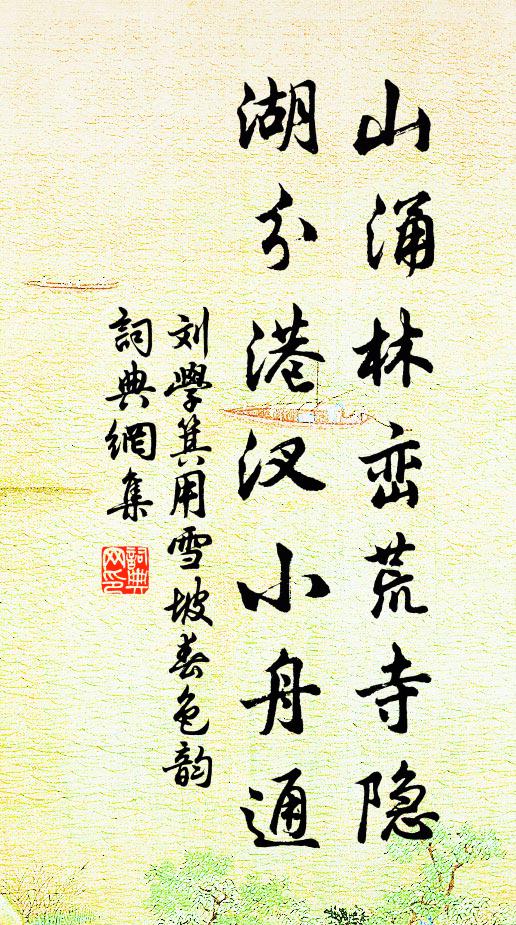 山涌林峦荒寺隐
湖分港汊小舟通
刘学箕用雪坡春色韵
詞典網集
詞典
网印